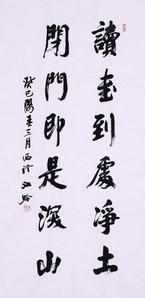 讀書到處淨土
閉門即是深山
癸巳陽春三月西泠